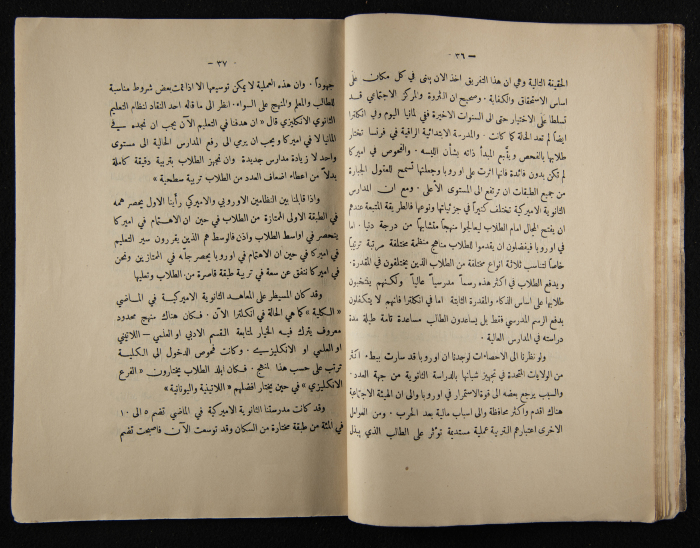 — ٣٦ —
الحقيقة التالية وهي ان هذا التفريق اخذ الان يبنى في كل مكان على
اساس الاستحقاق والكفاية. وصحيح ان الثروة والمركز الاجتماعي قد
تسلطا على الاختيار حتى الى السنوات الاخيرة ففي المانيا اليوم وفي انكلترا
ايضاً لم تعد الحالة كما كانت. والمدرسة الابتدائية الراقية في فرنسا تختار
طلابها بالفحص ويتّبع المبدأ ذاته بشأن الليسه. والفحوص في اميركا
لم تكن بدون فائدة فانها اثرت على اوروبا وجعلتها تسمح للعقول الجبارة
من جميع الطبقات ان ترتفع الى المستوى الأعلى. ومع ان المدارس
الثانوية الاميركية تختلف كثيراً في جزئياتها ونوعها فالطريقة المتبعة عندهم
ان يفتح المجال امام الطلاب ليعالجوا منهجاً متشابهاً من درجة دنيا. اما
في اوروبا فيفضلون ان يقدموا للطلاب مناهج منظمة مختلفة مرتبة ترتيباً
خاصاً لتناسب ثلاثة انواع مختلفة من الطلاب الذين يختلفون في المقدرة.
ويدفع الطلاب في اكثر هذه رسماً مدرسياً عالياً ولكنهم ينتخبون
طلابها على اساس الذكاء والمقدرة الثابتة اما في انكلترا فانهم لا يتكفلون
بدفع الرسم المدرسي فقط بل يساعدون الطالب مساعدة تامة طيلة مدة
دراسته في المدارس العالية.
ولو نظرنا الى الاحصاءات لوجدنا ان اوروبا قد سارت ببطء اكثر
من الولايات المتحدة في تجهيز شبانها بالدراسة الثانوية من جهة العدد.
والسبب يرجع بعضه الى قوة الاستمرار في اوروبا والى ان الهيئة الاجتماعية
هناك اقدم واكثر محافظة والى اسباب مالية بعد الحرب. ومن العوامل
الاخرى اعتبارهم التربية عملية مستديمة تؤثر على الطالب الذي يبذل
— ٣٧ —
جهوداً. وان هذه العملية لا يمكن توسيعها الا اذا تمت بعض شروط مناسبة
للطالب والمعلم والمنهج على السواء. انظر الى ما قاله احد النقاد لنظام التعليم
الثانوي الانكليزي قال « ان هدفنا في التعليم الآن يجب ان نجده في
المانيا لا في اميركا ويجب ان يرمي الى رفع المدارس الحالية الى مستوى
واحد لا زيادة مدارس جديدة وان نجهز الطلاب بتربية دقيقة كاملة
بدلاً من اعطاء اضعاف العدد من الطلاب تربية سطحية »
واذا قابلنا بين النظامين الاوروبي والاميركي رأينا الاول يحصر همه
في الطبقة الاولى الممتازة من الطلاب في حين ان الاهتمام في اميركا
ينحصر في اواسط الطلاب واذن فالوسط هم الذين يقررون سير التعليم
في اميركا في حين ان الاهتمام في اوروبا يحصر جله في الممتازين ونحن
في اميركا ننفق عن سعة في تربية طبقة قاصرة من الطلاب وتعليمها
وقد كان المسيطر على المعاهد الثانوية الاميركية في الماضي
« الكلية » كما هي الحالة في انكلترا الآن. فكان هناك منهج محدود
معروف يترك فيه الخيار لمتابعة القسم الادبي او العلمي — اللاتيني
او العلمي او الانكليزي. وكانت فحوص الدخول الى الكلية
ترتب على حسب هذا المنهج. فكان ابلد الطلاب يختارون « الفرع
الانكليزي » في حين يختار افضلهم « اللاتينية واليونانية »
وقد كانت مدرستنا الثانوية الاميركية في الماضي تضم ٥ الى ١٠
في المئة من طبقة مختارة من السكان وقد توسعت الآن فاصبحت تضم